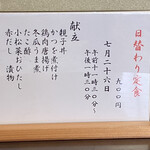 日替わり定食
九〇〇円
七月二十六日
午前十一時三〇分〜
午後一時三〇分
献立
親子丼
かつを煮付け
鶏肉唐揚げ
冬瓜うま煮
たこ酢
小松菜おひたし
赤だし 漬物